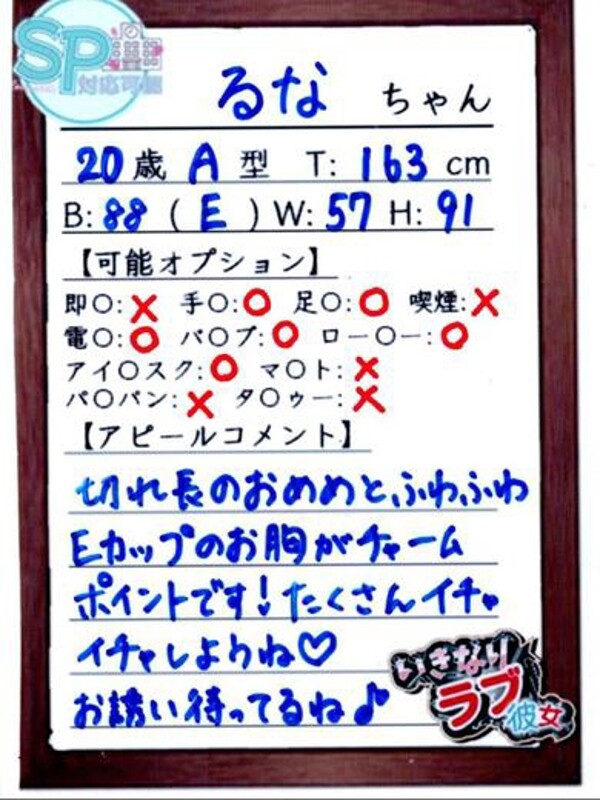 SP
対応可能
るな ちゃん
20歳 A 型 T: 163 cm
B: 88 ( E ) W: 57 H: 91
【可能オプション】
即〇:× 手〇:〇 足〇:〇 喫煙:×
電〇:〇 バ〇ブ:〇 ロー〇ー:〇
アイ〇スク:〇 マ〇ト:×
パ〇パン:× タ〇ゥー:×
【アピールコメント】
切れ長のおめめと、ふわふわ
Eカップのお胸がチャーム
ポイントです!たくさんイチャ
イチャしようね♡
お誘い待ってるね♪
いきなり
ラブ
彼女